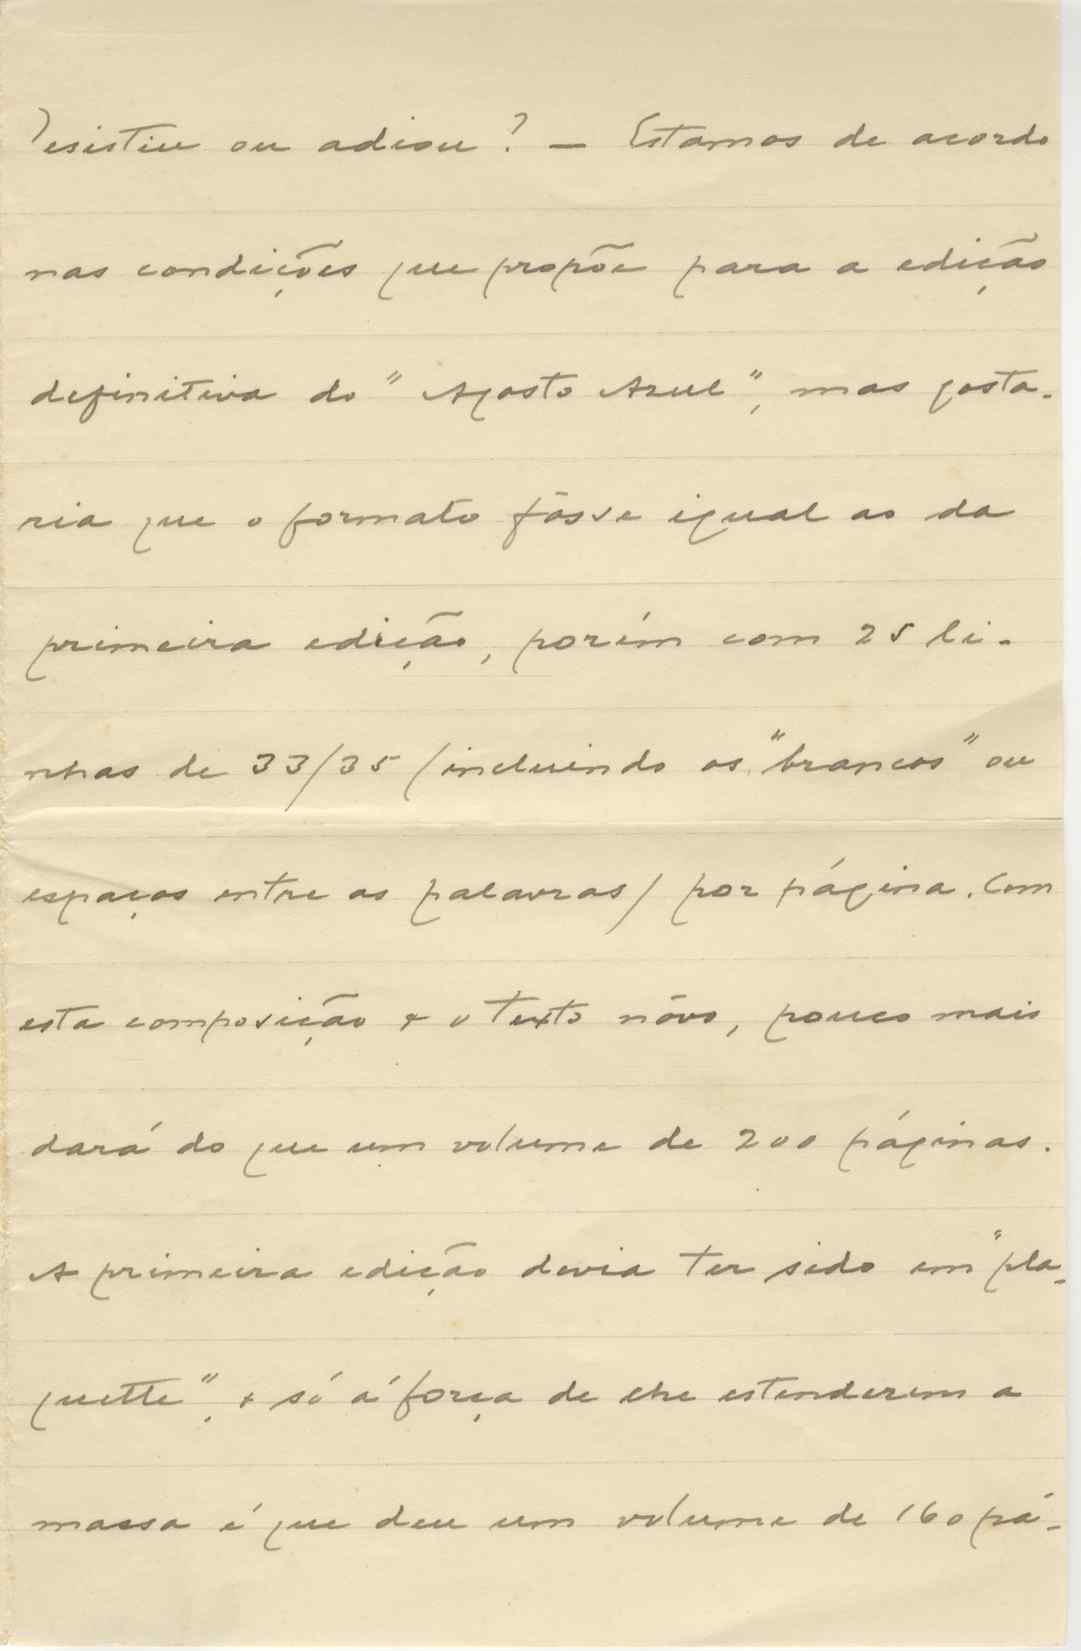 Desistiu ou adiou? — Estamos de acordo
nas condições que propõe para a edição
definitiva do "Agosto Azul", mas gosta-
ria que o formato fôsse igual ao da
primeira edição, porém com 25 li-
nhas de 33/35 (incluindo os "brancos" ou
espaços entre as palavras) por página. Com
esta composição e o texto nôvo, pouco mais
dará do que um volume de 200 páginas.
A primeira edição devia ter sido em "pla-
quette", e só á força de lhe estenderem a
massa é que deu um volume de 160 pá-